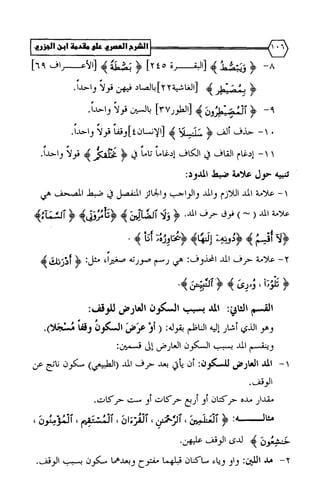 ١٠٦ الشرح العصري على مقدمة ابن الجزري
٨- ﴿ وَيَبْصُطُ ﴾ [البقـــرة ٢٤٥] ﴿ بَصْطَةً ﴾ [الأعـــراف ٦٩]
﴿ بِمُصَيْطِرٍ ﴾ [الغاشية٢٢] بالصاد فيهن قولاً واحداً.
٩- ﴿ الْمُصَيْطِرُونَ ﴾ [الطور٣٧] بالسين قولاً واحداً.
١٠- حذف ألف ﴿ سَلَسِلَا ﴾ [الإنسان٤] وقفاً قولاً واحداً.
١١- إدغام القاف في الكاف إدغاماً تاماً في ﴿ نَخْلُقكُّم ﴾ قولاً واحداً.
تنبيه حول علامة ضبط المدود:
١- علامة المد اللازم والمد والواجب والجائز المنفصل في ضبط المصحف هي
علامة المد ( ~ ) فوق حرف المد. ﴿ وَلَا الضَّالِّينَ ﴾ ﴿تَأْمُرُوٓنِّي﴾ ﴿ السَّمَآءِ﴾
﴿لَآ أُقْسِمُ ﴾ ﴿دُونِهِۦٓ إِلَٰهًا﴾ ﴿يُحَاوِرُهُۥٓ أَنَا۠ ﴾ .
٢- علامة حرف المد المحذوف: هي رسم صورته صغيراً، مثل: ﴿ أَدْرَىٰكَ ﴾
﴿ تَلْوُۥٓا ، وُۥرِيَ ﴾ ﴿ النَّبِيِّـۧنَ ﴾.
القسم الثاني: المد بسبب السكون العارض للوقف:
وهو الذي أشار إليه الناظم بقوله: ( أَوْ عَرَضَ السكونُ وَقفاً مُسْجَلا).
وينقسم المد بسبب السكون العارض إلى قسمين:
١- المد العارض للسكون: أن يأتي بعد حرف المد (الطبيعي) سكون ناتج عن
الوقف.
مقدار مده حركتان أو أربع حركات أو ست حركات.
مثالـــــه: ﴿ الْعَٰلَمِينَ ، الرَّحْمَٰنِ ، الْقُرْءَانَ ، الْمُسْتَقِيمَ ، الْمُؤْمِنُونَ ،
خَٰشِعُونَ ﴾ لدى الوقف عليهن.
٢- مد اللين: واو وياء ساكنتان قبلهما مفتوح وبعدهما سكون بسبب الوقف.